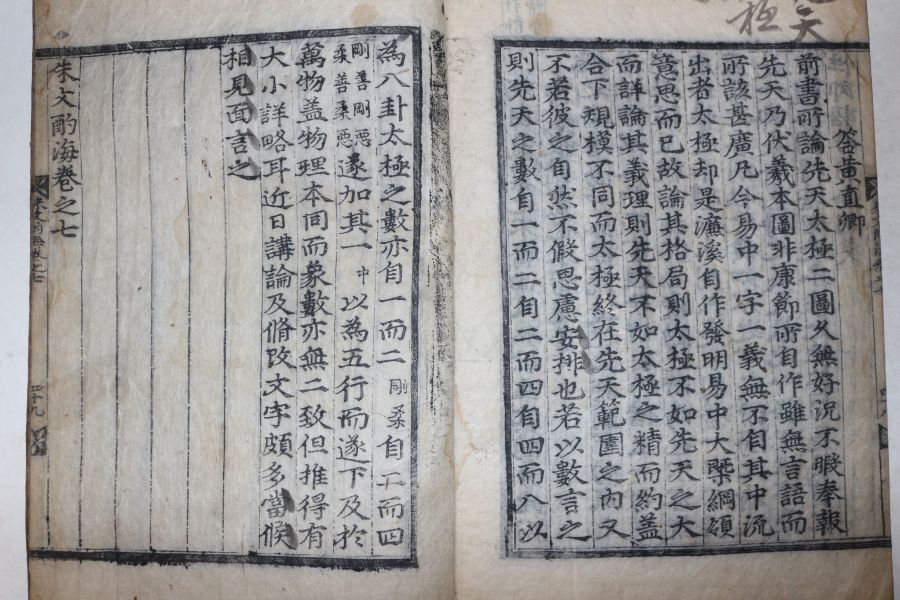 天
極
答黃直卿
前書所論先天太極二圖久無好況不暇奉報
先天乃伏羲本圖非康節所自作雖無言語而
所該甚廣凡今易中一字一義無不自其中流
出者太極却是濂溪自作發明易中大槩綱領
意思而已故論其格局則太極不如先天之大
而詳論其義理則先天不如太極之精而約盖
合下規模不同而太極終在先天範圍之內又
不若彼之自然不假思慮安排也若以數言之
則先天之數自一而二自二而四自四而八以
為八卦太極之數亦自一而二剛柔自二而四
剛善剛惡柔善柔惡遂加其一中以為五行而遂下及於
萬物盖物理本同而象數亦無二致但推得有
大小詳略耳近日講論及脩改文字頗多當候
相見面言之
朱文酌海卷之七
四十九